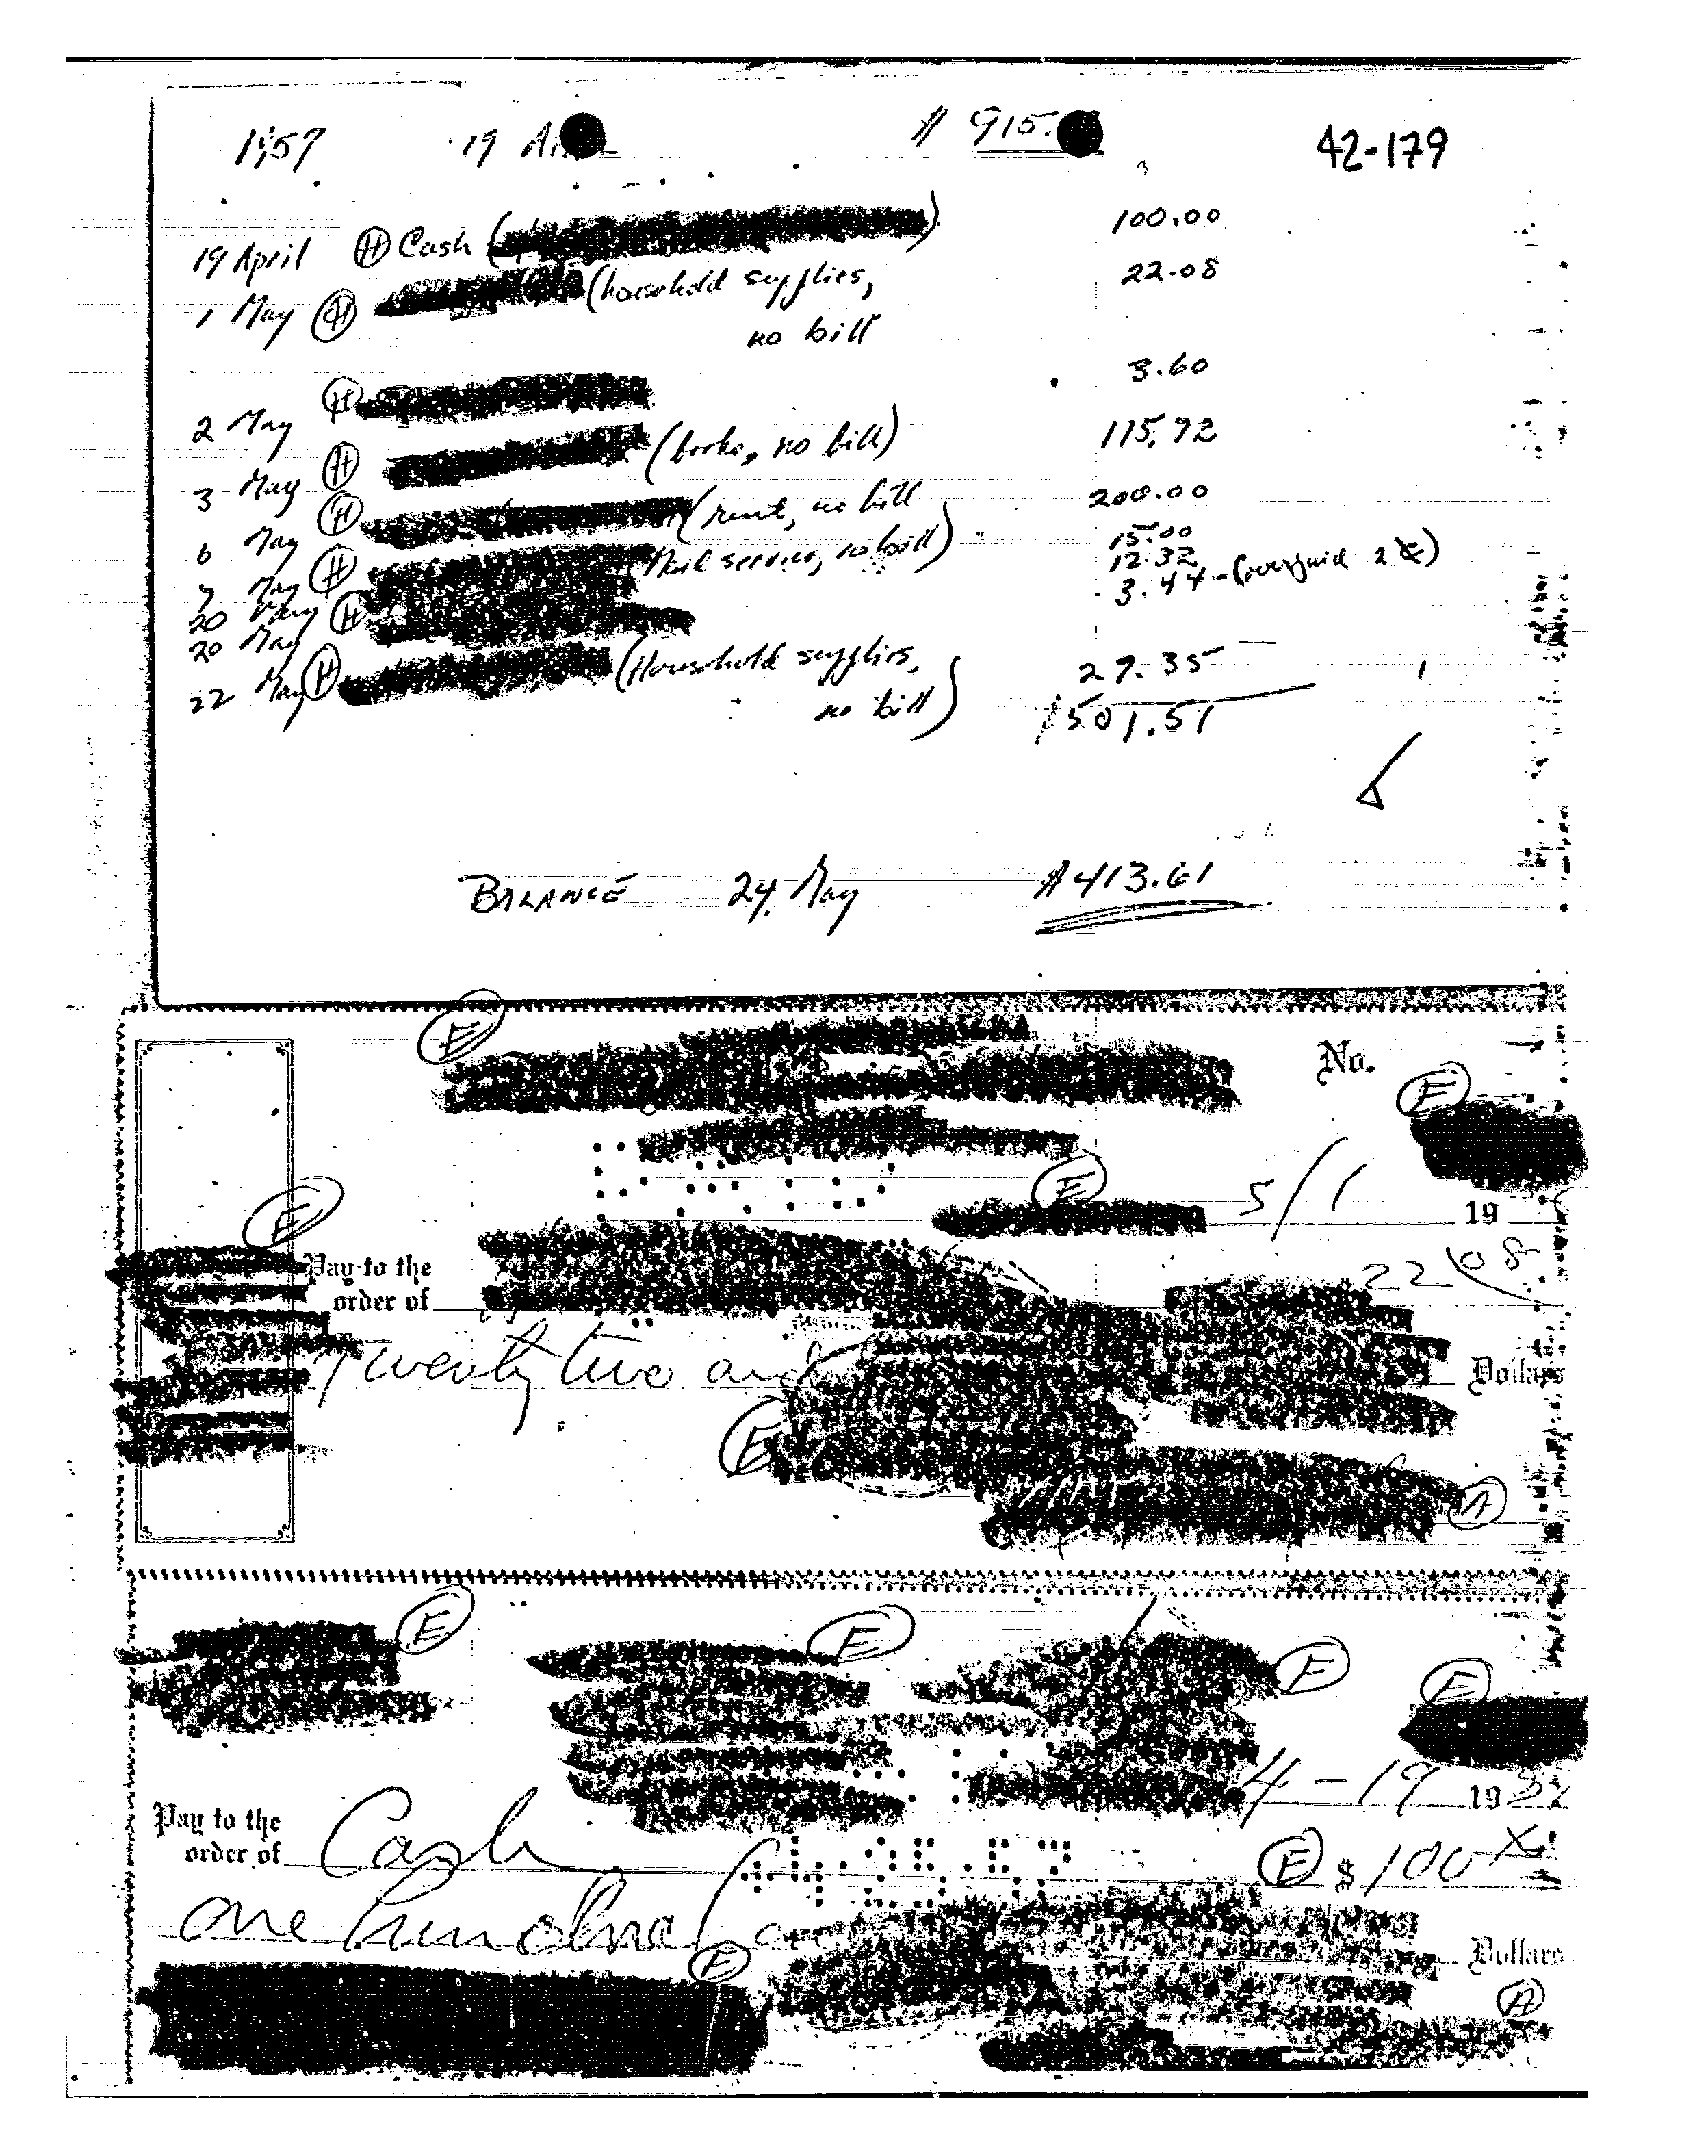 1957 19 $ 915. 42-179
19 April (H) Cash ( ) 100.00
1 May (H) (household supplies, 22.08
no bill
2 May (H) 3.60
3 May (H) (books, no bill) 115.72
6 May (H) (rent, no bill 200.00
7 May (H) service, no bill) 15.00
20 May (H) 12.32
20 May 3.44 - (overpaid 2 ¢)
22 May (H) (Household supplies, 29.35
no bill) 501.51
BALANCE 24 May $413.61
(E)
No.
(E)
(E) 5/1 19
(E)
Pay to the 22 08
order of
Twenty two and Dollars
(E)
(A)
(E) (E) (E) (E)
4-19 19
Pay to the
order of Cash (E) $ 100
one hundred Dollars
(E)
(A)